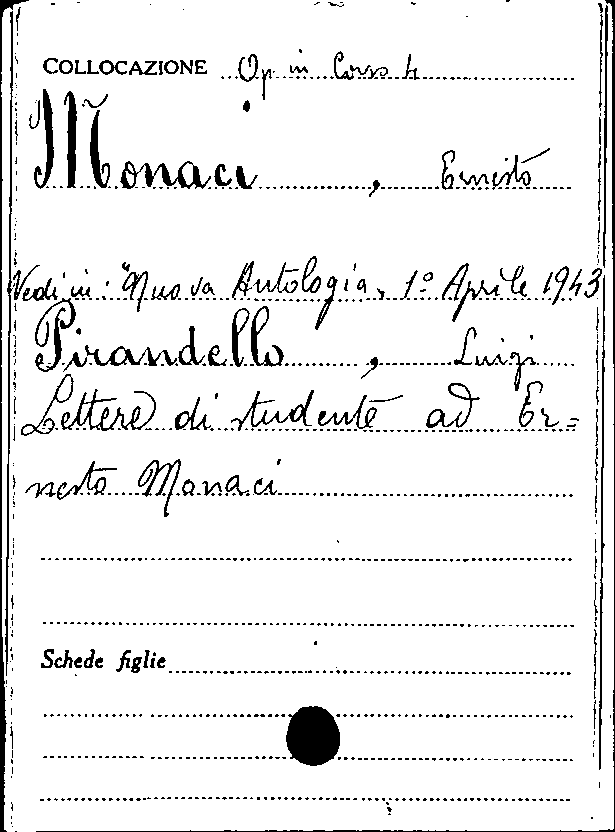 COLLOCAZIONE Op in Corso 4
Monaci, Ernesto
Vedi in: "Nuova Antologia, 1º Aprile 1943
Pirandello, Luigi
Lettere di studente ad Er=
nesto Monaci
Schede figlie